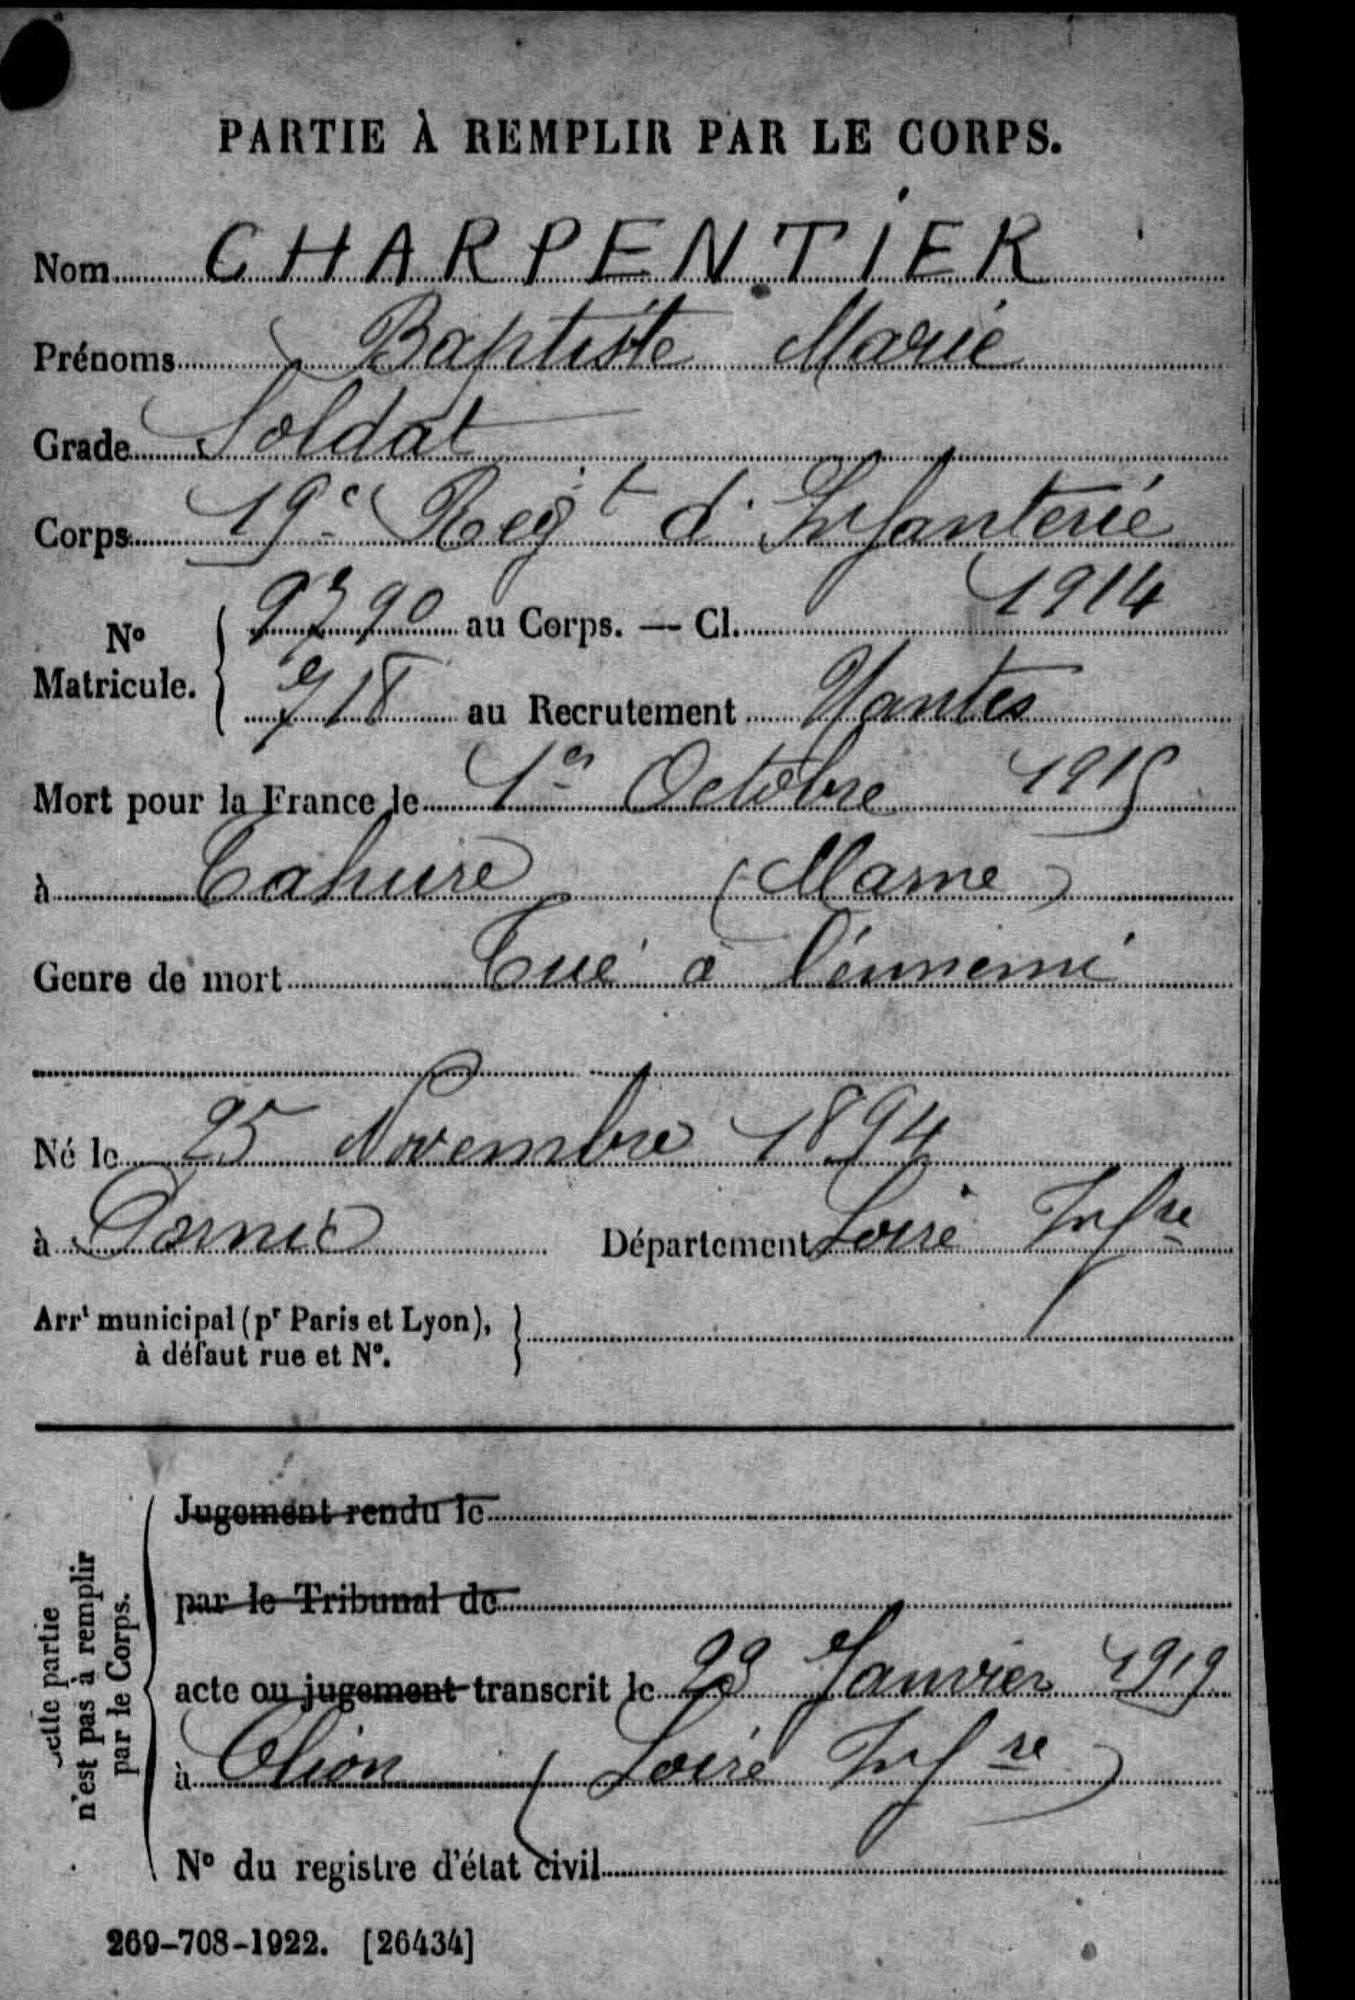 PARTIE À REMPLIR PAR LE CORPS.
Nom CHARPENTIER
Prénoms Baptiste Marie
Grade Soldat
Corps 19e Regt d'Infanterie
No Matricule. { 9790 au Corps. — Cl. 1914
718 au Recrutement Nantes
Mort pour la France le 1er Octobre 1915
à Tahure (Marne)
Genre de mort Tué à l'ennemi
Né le 25 Novembre 1894
à Pornic Département Loire Infre
Arrt municipal (pr Paris et Lyon), }
à défaut rue et No.
Cette partie
n'est pas à remplir
par le Corps.
Jugement rendu le
par le Tribunal de
acte ou jugement transcrit le Janvier 1919
à Clion (Loire Infre)
No du registre d'état civil
269-708-1922. [26434]